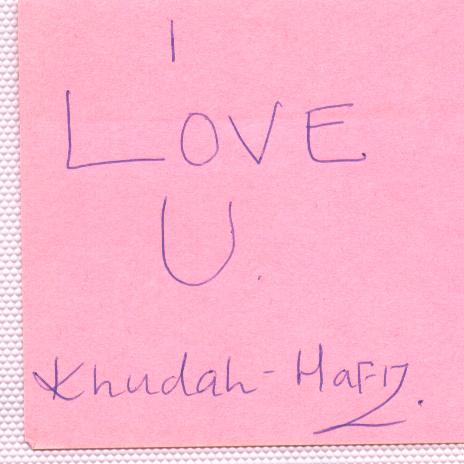 I
LOVE
U.
Khudah-Hafiz.